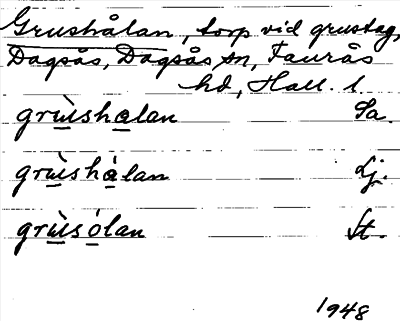 Grushålan, torp vid grustag,
Dagsås, Dagsås sn, Faurås
hd, Hall. l.
grùshalan Sa.
grùshàlan Lj.
grùsólan St.
1948